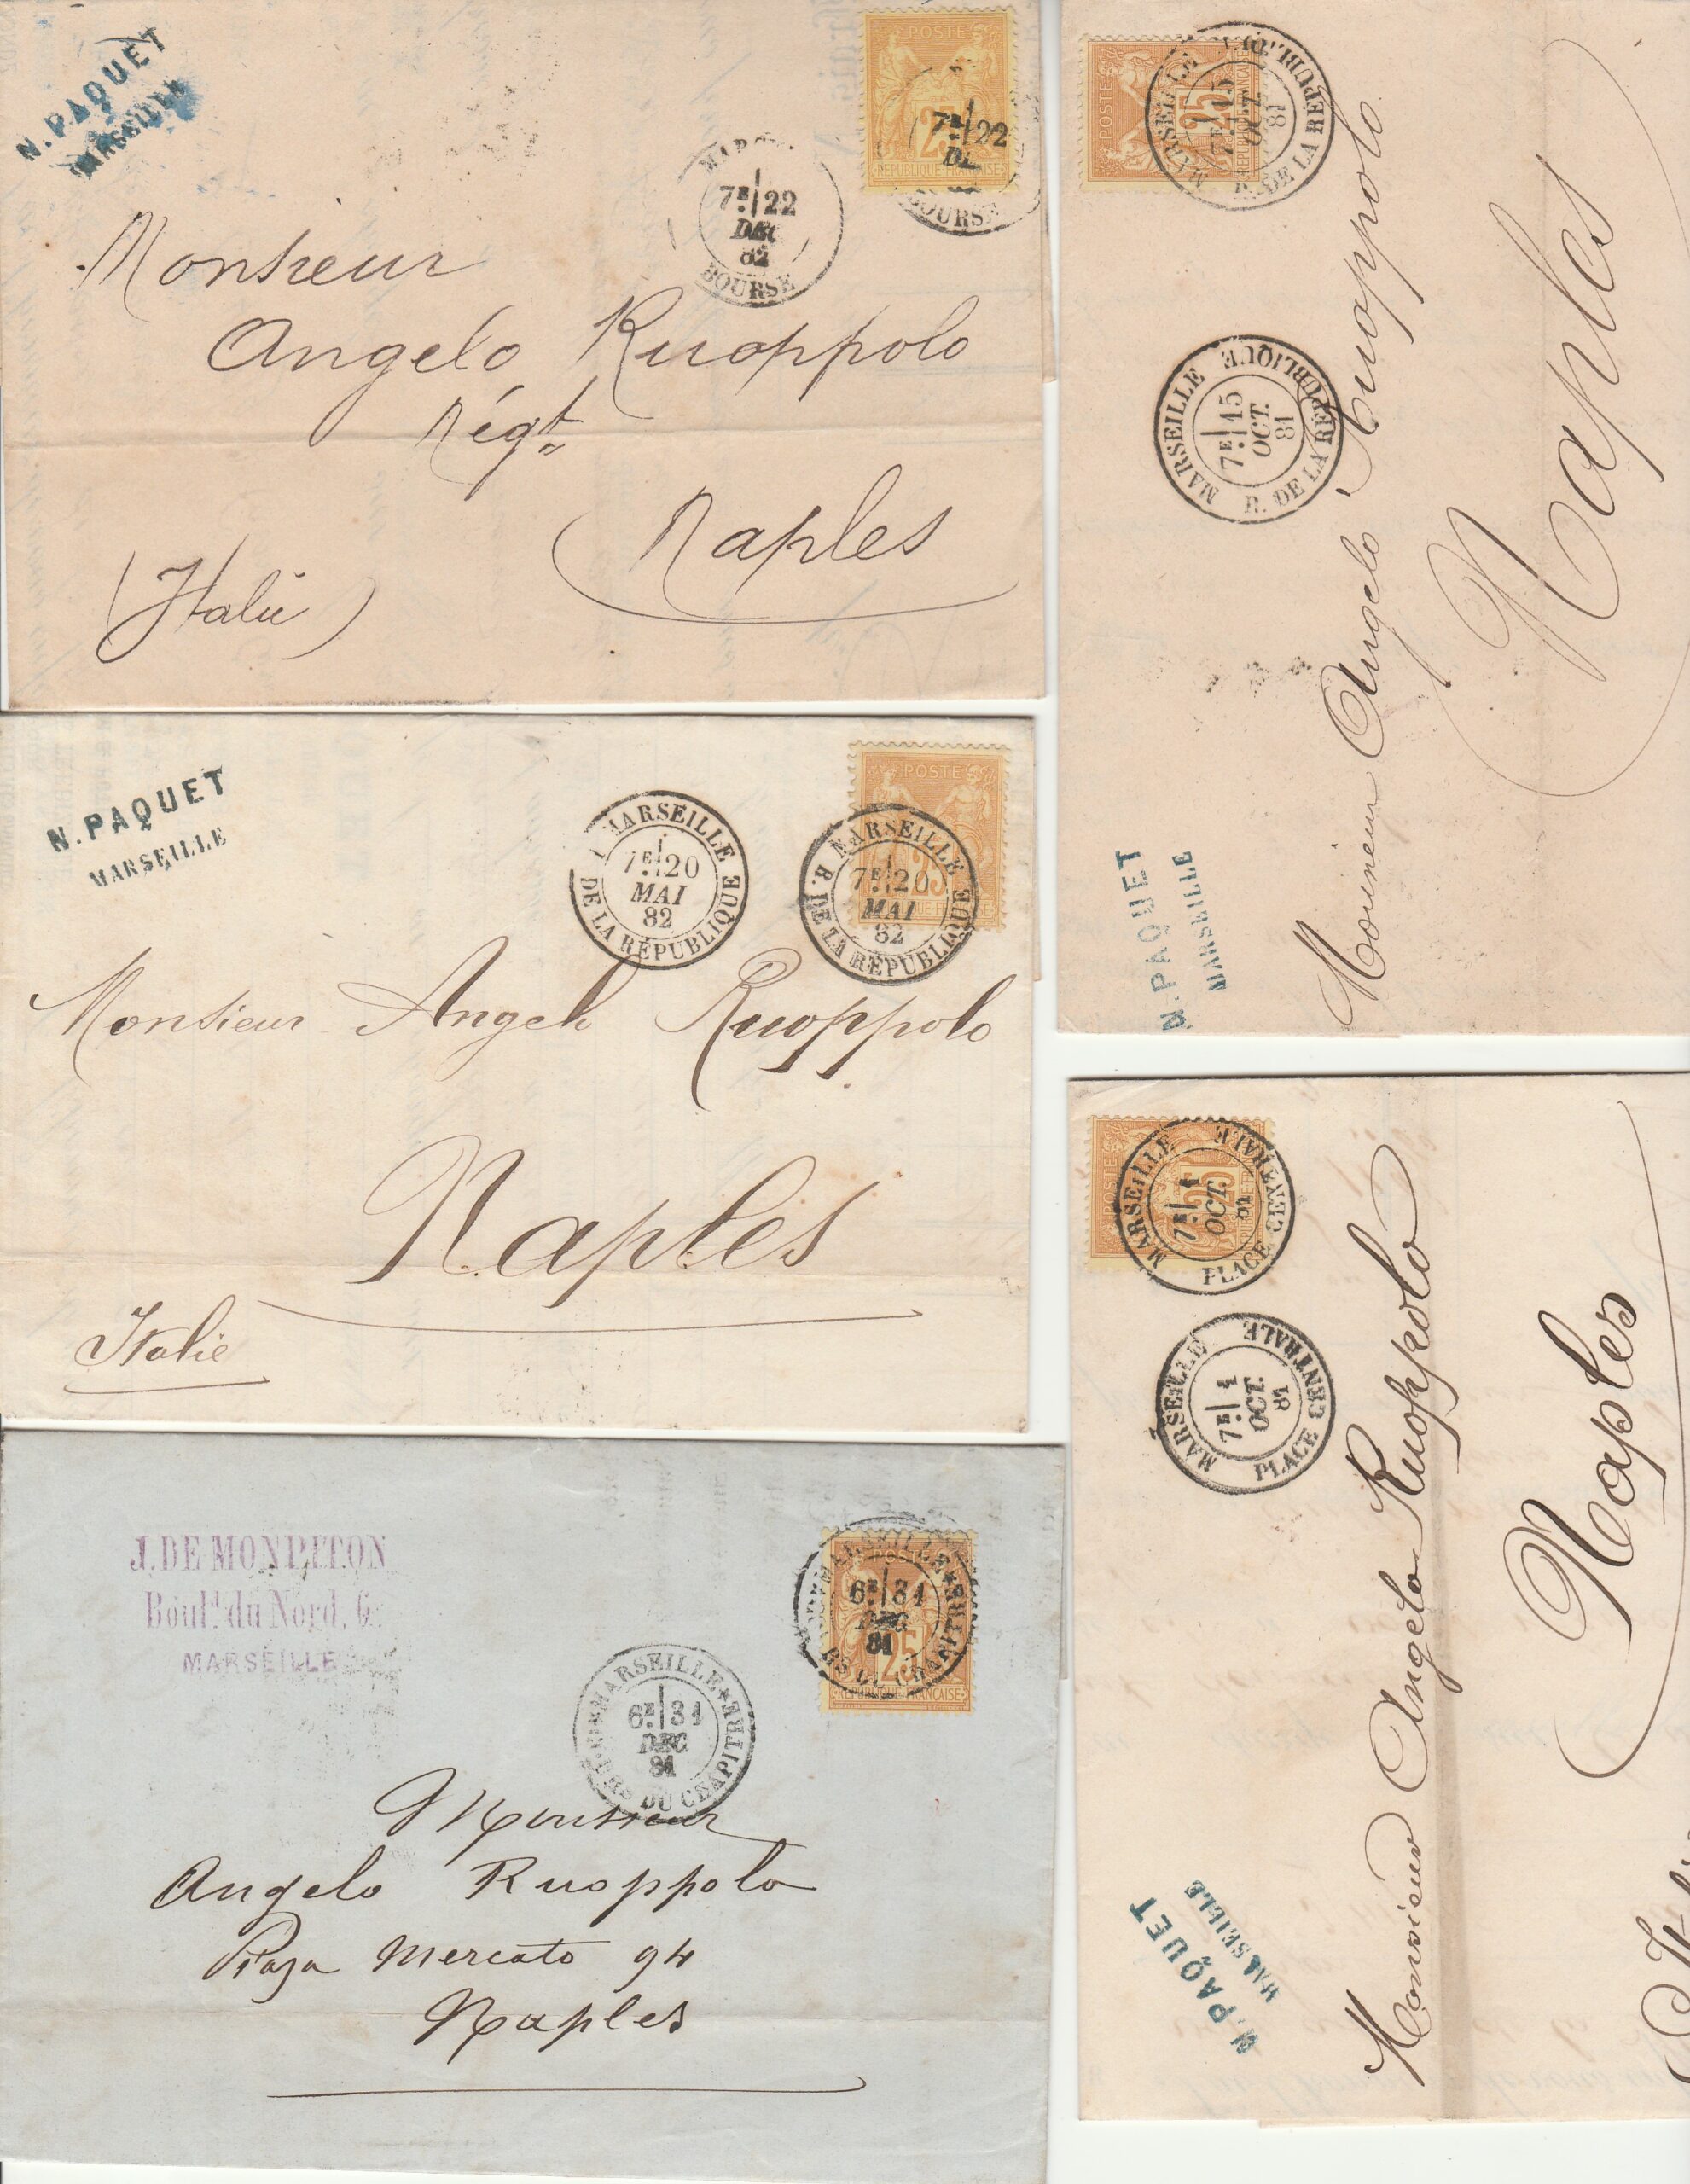 N. PAQUET
MARSEILLE
POSTE
25
REPUBLIQUE FRANÇAISE
7E 22
BOURSE
7E 22
DEC
82
BOURSE
Monsieur
Angelo Ruoppolo
Négt
Naples
(Italie)
N. PAQUET
MARSEILLE
POSTE
25
MARSEILLE
7E 20
MAI
82
DE LA RÉPUBLIQUE
MARSEILLE
7E 20
MAI
82
R. DE LA RÉPUBLIQUE
Monsieur Angelo Ruoppolo
Naples
Italie
J. DE MONPITON
Boul.d du Nord,
MARSEILLE
POSTE
25
REPUBLIQUE FRANÇAISE
MARSEILLE
6E 31
DEC
81
MARSEILLE
6E 31
DEC
81
DU CHAPITRE
Monsieur
Angelo Ruoppolo
Piaza Mercato 94
Naples
POSTE
25
MARSEILLE
7E 15
OCT.
81
R. DE LA RÉPUBLIQUE
MARSEILLE
7E 15
OCT.
81
R. DE LA RÉPUBLIQUE
N. PAQUET
MARSEILLE
Monsieur Angelo Ruoppolo
Naples
POSTE
25
MARSEILLE
7E 1
OCT.
PLACE CENTRALE
MARSEILLE
7E 1
OCT.
81
PLACE CENTRALE
N. PAQUET
MARSEILLE
Monsieur Angelo Ruoppolo
Naples